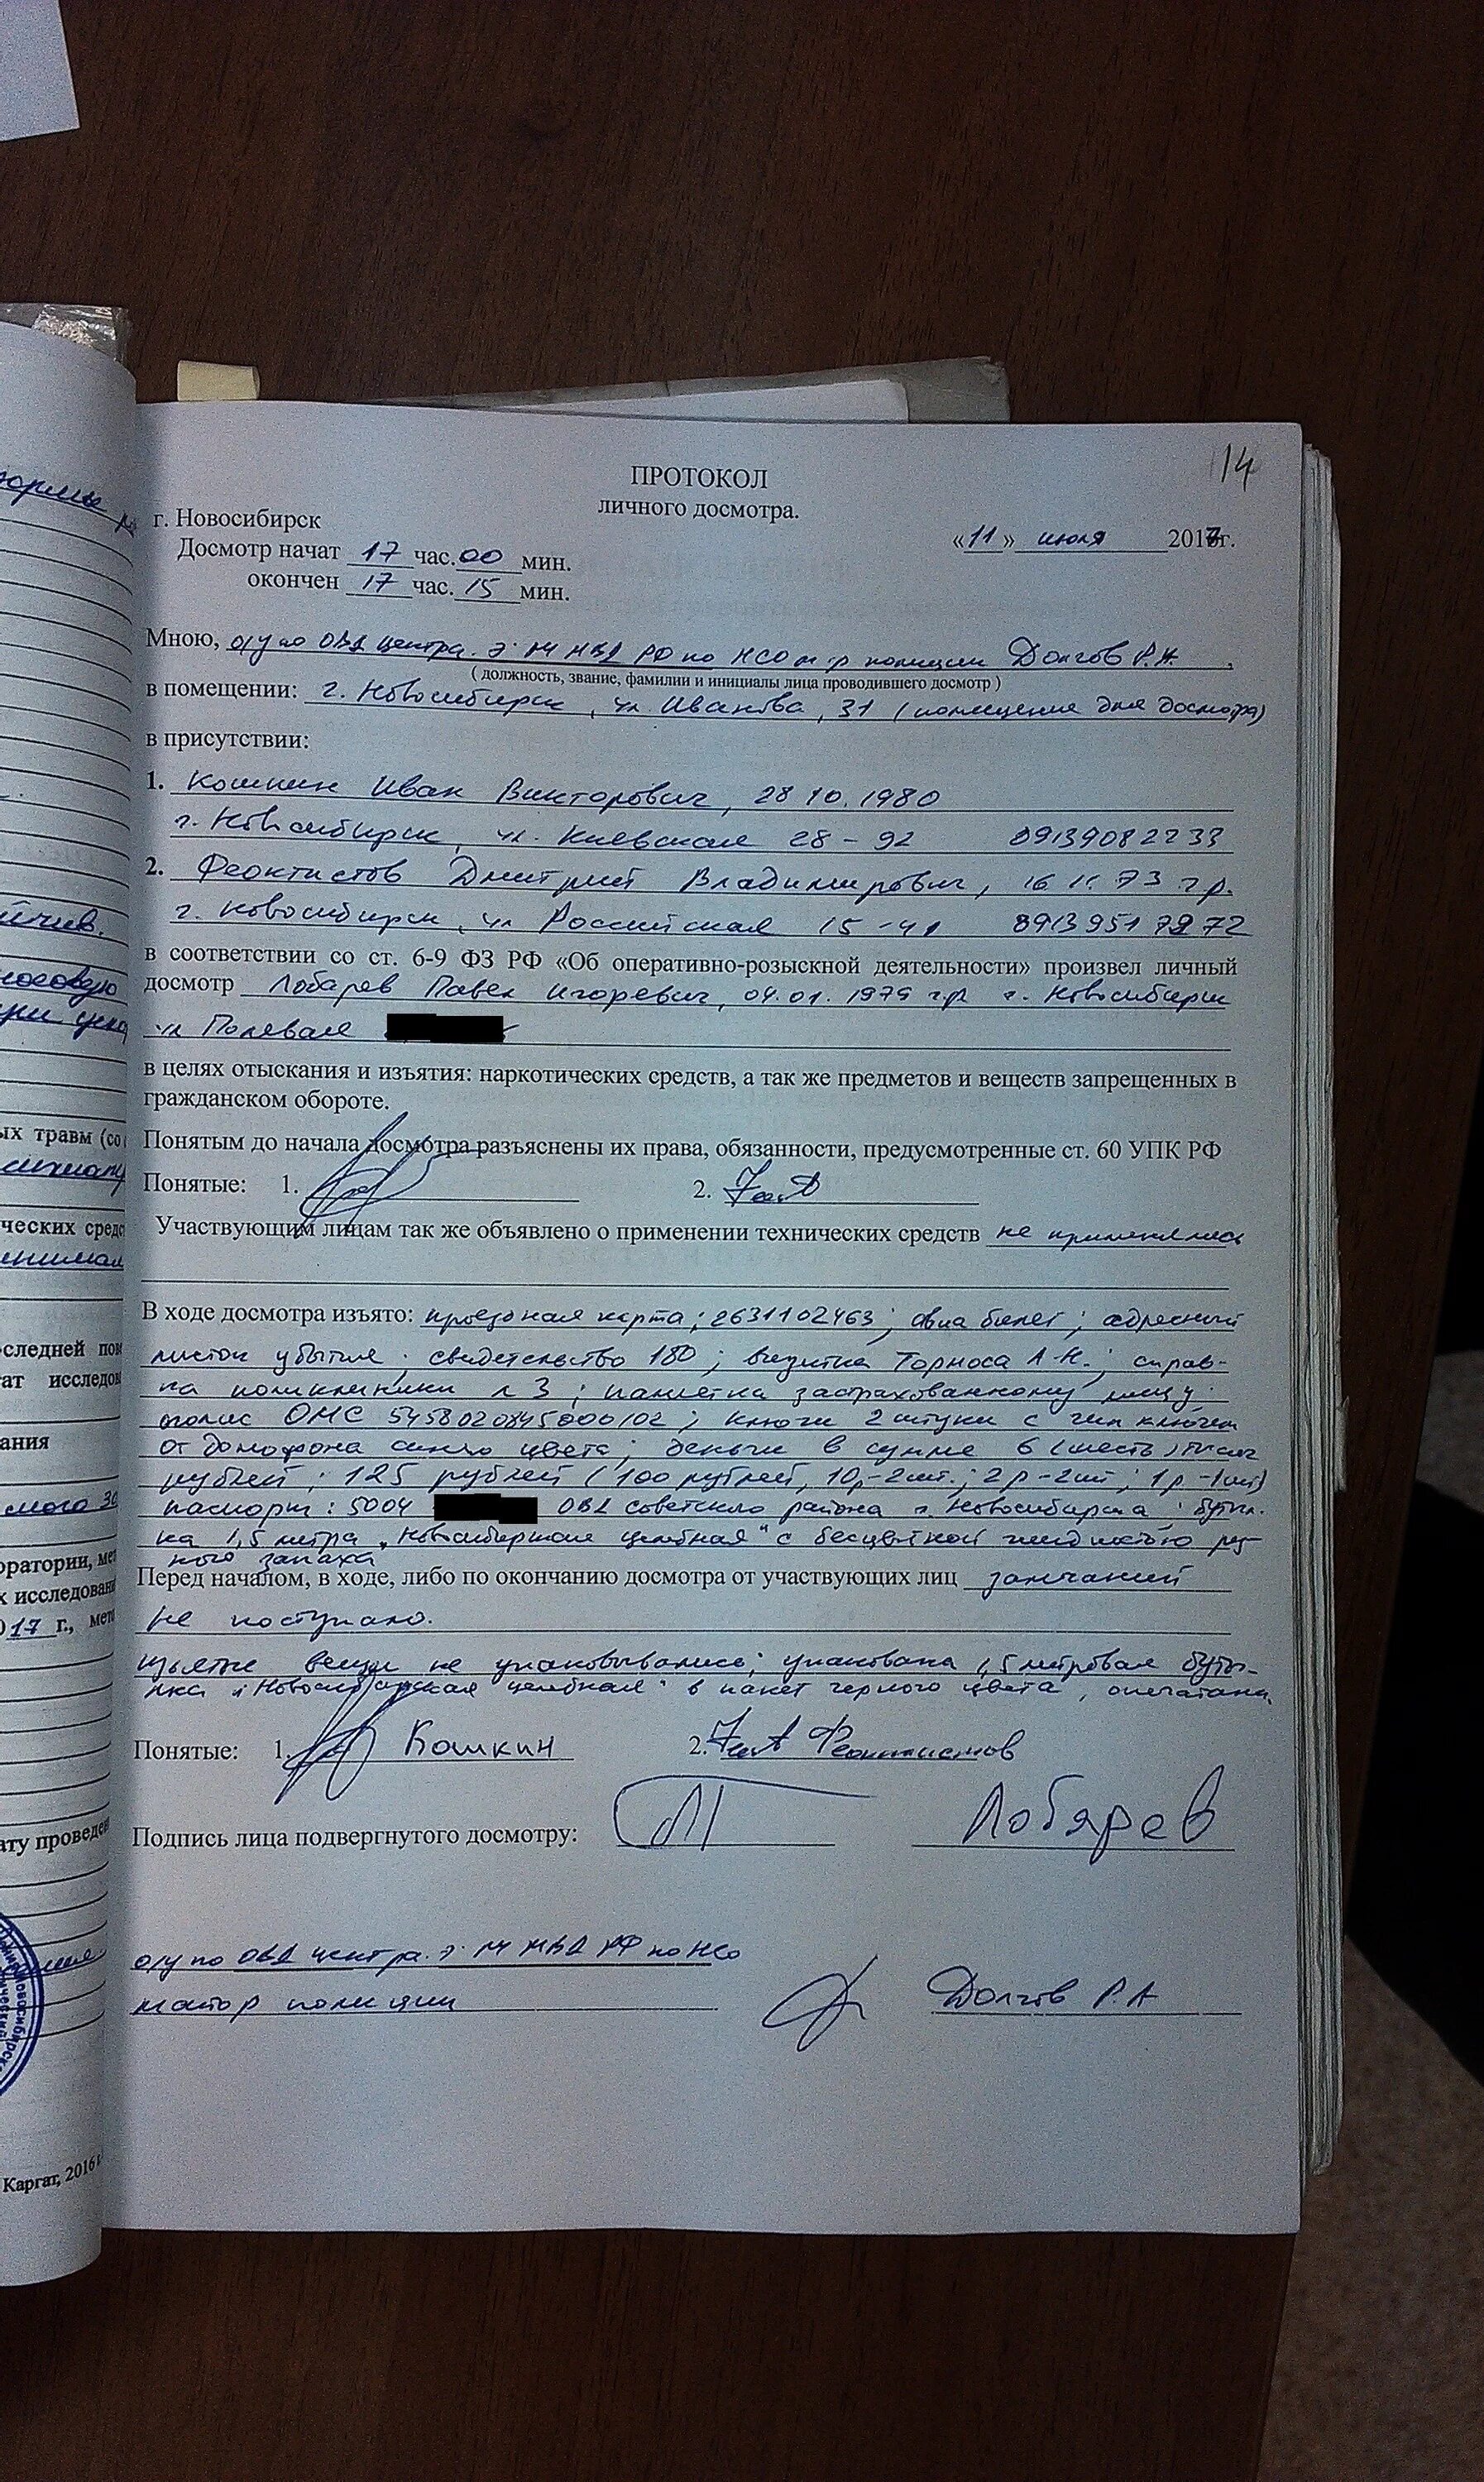 14
ПРОТОКОЛ
личного досмотра.
г. Новосибирск
«11» июля 2017г.
Досмотр начат 17 час. 00 мин.
окончен 17 час. 15 мин.
Мною, о/у по ОВД центра Э ГУ МВД РФ по НСО м-р полиции Долгов Р.А.
( должность, звание, фамилии и инициалы лица проводившего досмотр )
в помещении: г. Новосибирск, ул. Иванова, 31 (помещение для досмотра)
в присутствии:
1. Кошкин Иван Викторович, 28 10.1980
г. Новосибирск, ул. Киевская 28-92 89139082233
2. Феоктистов Дмитрий Владимирович, 16 11.73 г.р.
г. Новосибирск, ул Российская 15-41
в соответствии со ст. 6-9 ФЗ РФ «Об оперативно-розыскной деятельности» произвел личный
досмотр Лобарев Павел Игоревич, 04.01.1979 г.р. г. Новосибирск
ул Полевая
в целях отыскания и изъятия: наркотических средств, а так же предметов и веществ запрещенных в
гражданском обороте.
Понятым до начала досмотра разъяснены их права, обязанности, предусмотренные ст. 60 УПК РФ
Понятые: 1. 2.
Участвующим лицам так же объявлено о применении технических средств не применялись
В ходе досмотра изъято: проездная карта; 2631102463; авиа билет; адресный
листок убытия; свидетельство 180; визитка Торноса А.Н.; справ-
ка поликлиники л 3; памятка застрахованному лицу;
полис ОМС 5458020845000102; ключи 2 штуки с чип ключем
от домофона синего цвета; деньги в сумме 6 (шесть) тысяч
рублей; 125 рублей (100 рублей, 10,-2шт.; 2 р-2шт; 1р-1шт)
паспорт: 5004 ОВД советского района г. Новосибирска; бутыл-
ка 1,5 литра „Новосибирская целебная" с бесцветной жидкостью рез-
кого запаха
Перед началом, в ходе, либо по окончанию досмотра от участвующих лиц замечаний
не поступало.
изъятые вещи не упаковывались; упакована 1,5 литровая буты-
лка „Новосибирская целебная" в пакет черного цвета, опечатана
Понятые: 1. Кошкин 2. Феоктистов
Подпись лица подвергнутого досмотру: Лобарев
о/у по ОВД центра Э ГУ МВД РФ по НСО
майор полиции Долгов Р.А
Каргат, 2016 г